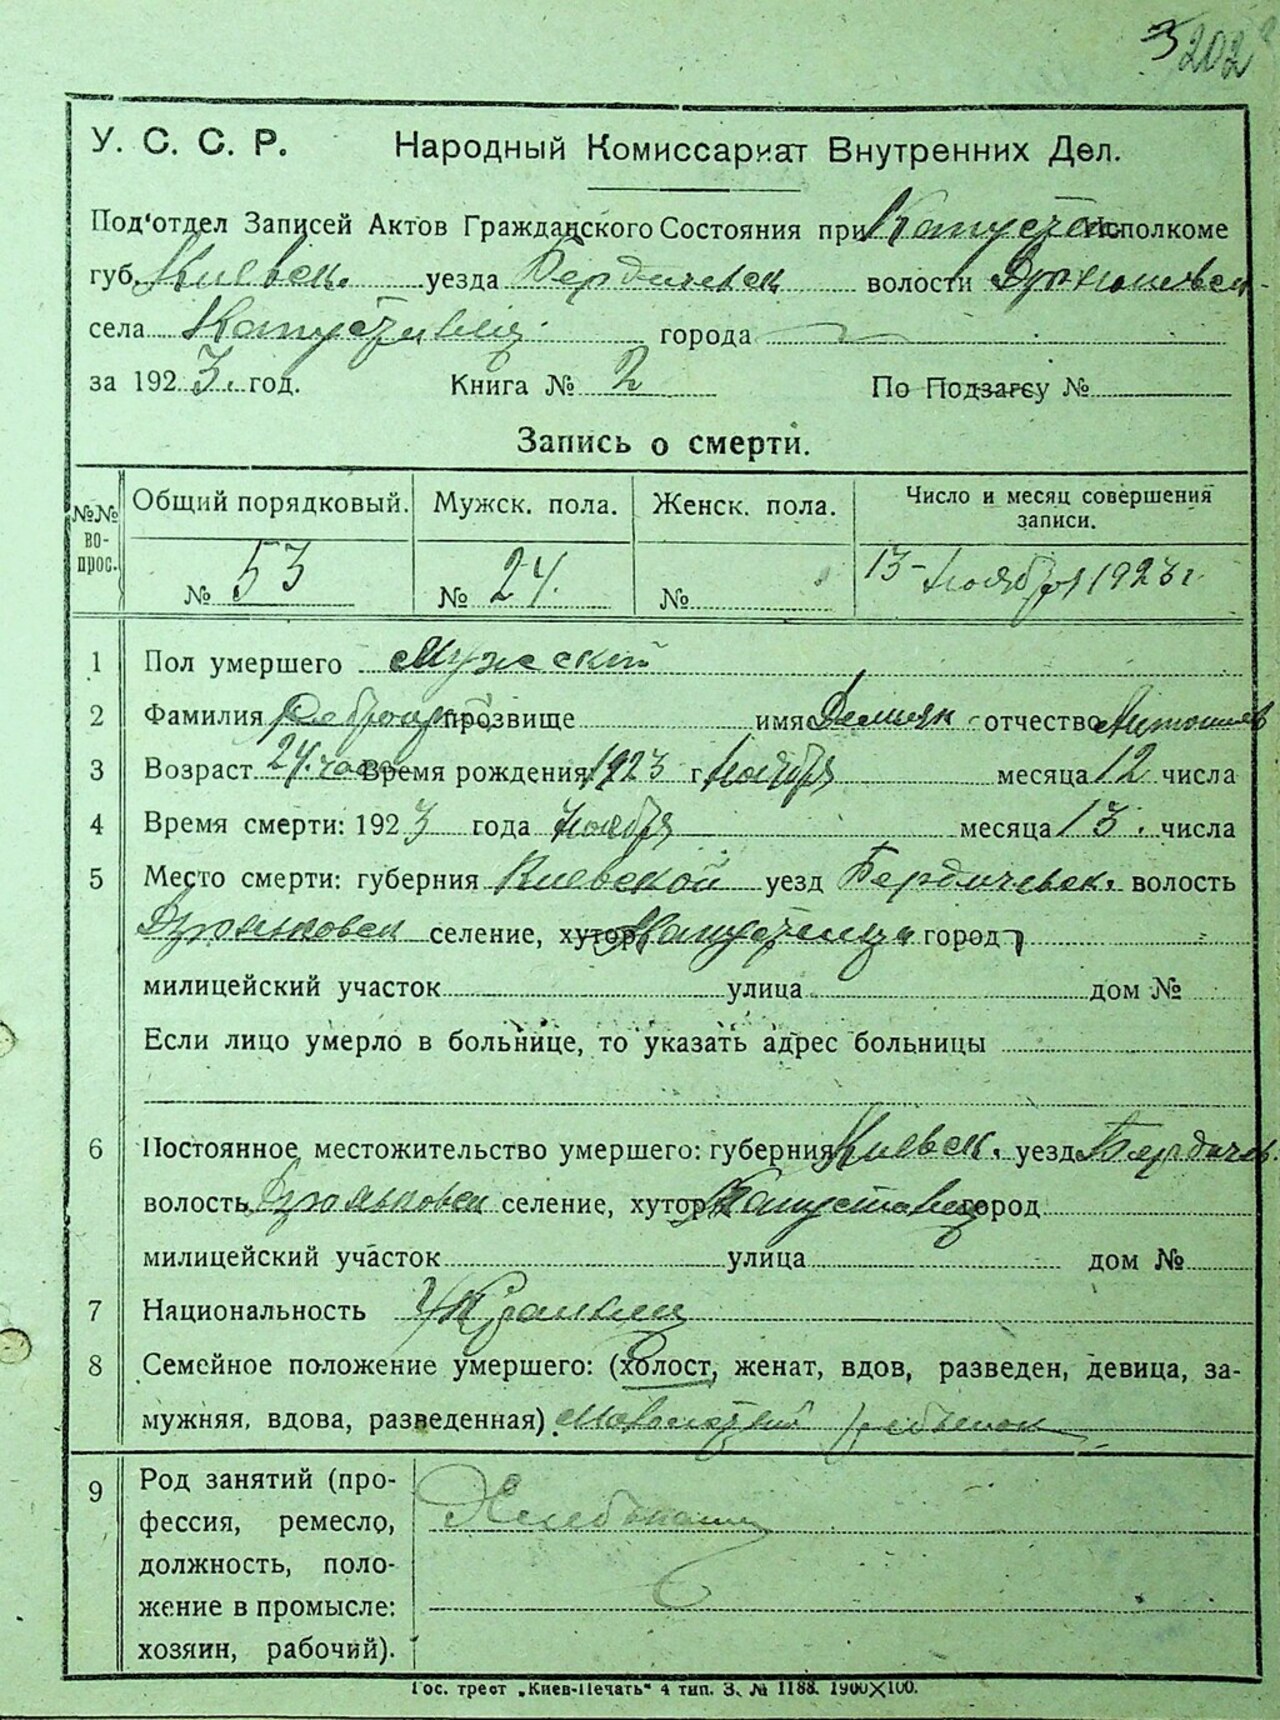 3 202
У. С. С. Р. Народный Комиссариат Внутренних Дел.
Под'отдел Записей Актов Гражданского Состояния при Исполкоме
губ. Киевск. уезда Бердичевск волости
села города
за 1923. год. Книга № 2 По Подзагсу №
Запись о смерти.
№№ вопрос. Общий порядковый. Мужск. пола. Женск. пола. Число и месяц совершения записи.
№ 53 № 24. № 13- ноября 1923 г.
1 Пол умершего Мужеский
2 Фамилия прозвище имя Демиян отчество
3 Возраст 24. часа Время рождения 1923 г. Ноября месяца 12 числа
4 Время смерти: 1923 года Ноября месяца 13. числа
5 Место смерти: губерния Киевской уезд Бердичевск. волость
селение, хутор город
милицейский участок улица дом №
Если лицо умерло в больнице, то указать адрес больницы
6 Постоянное местожительство умершего: губерния Киевск. уезд Бердичев.
волость селение, хутор город
милицейский участок улица дом №
7 Национальность
8 Семейное положение умершего: (холост, женат, вдов, разведен, девица, за-
мужняя, вдова, разведенная). ребенок
9 Род занятий (про-
фессия, ремесло,
должность, поло-
жение в промысле:
хозяин, рабочий).
Гос. трест „Киев-Печать“ 4 тип. З. № 1188. 1900X100.